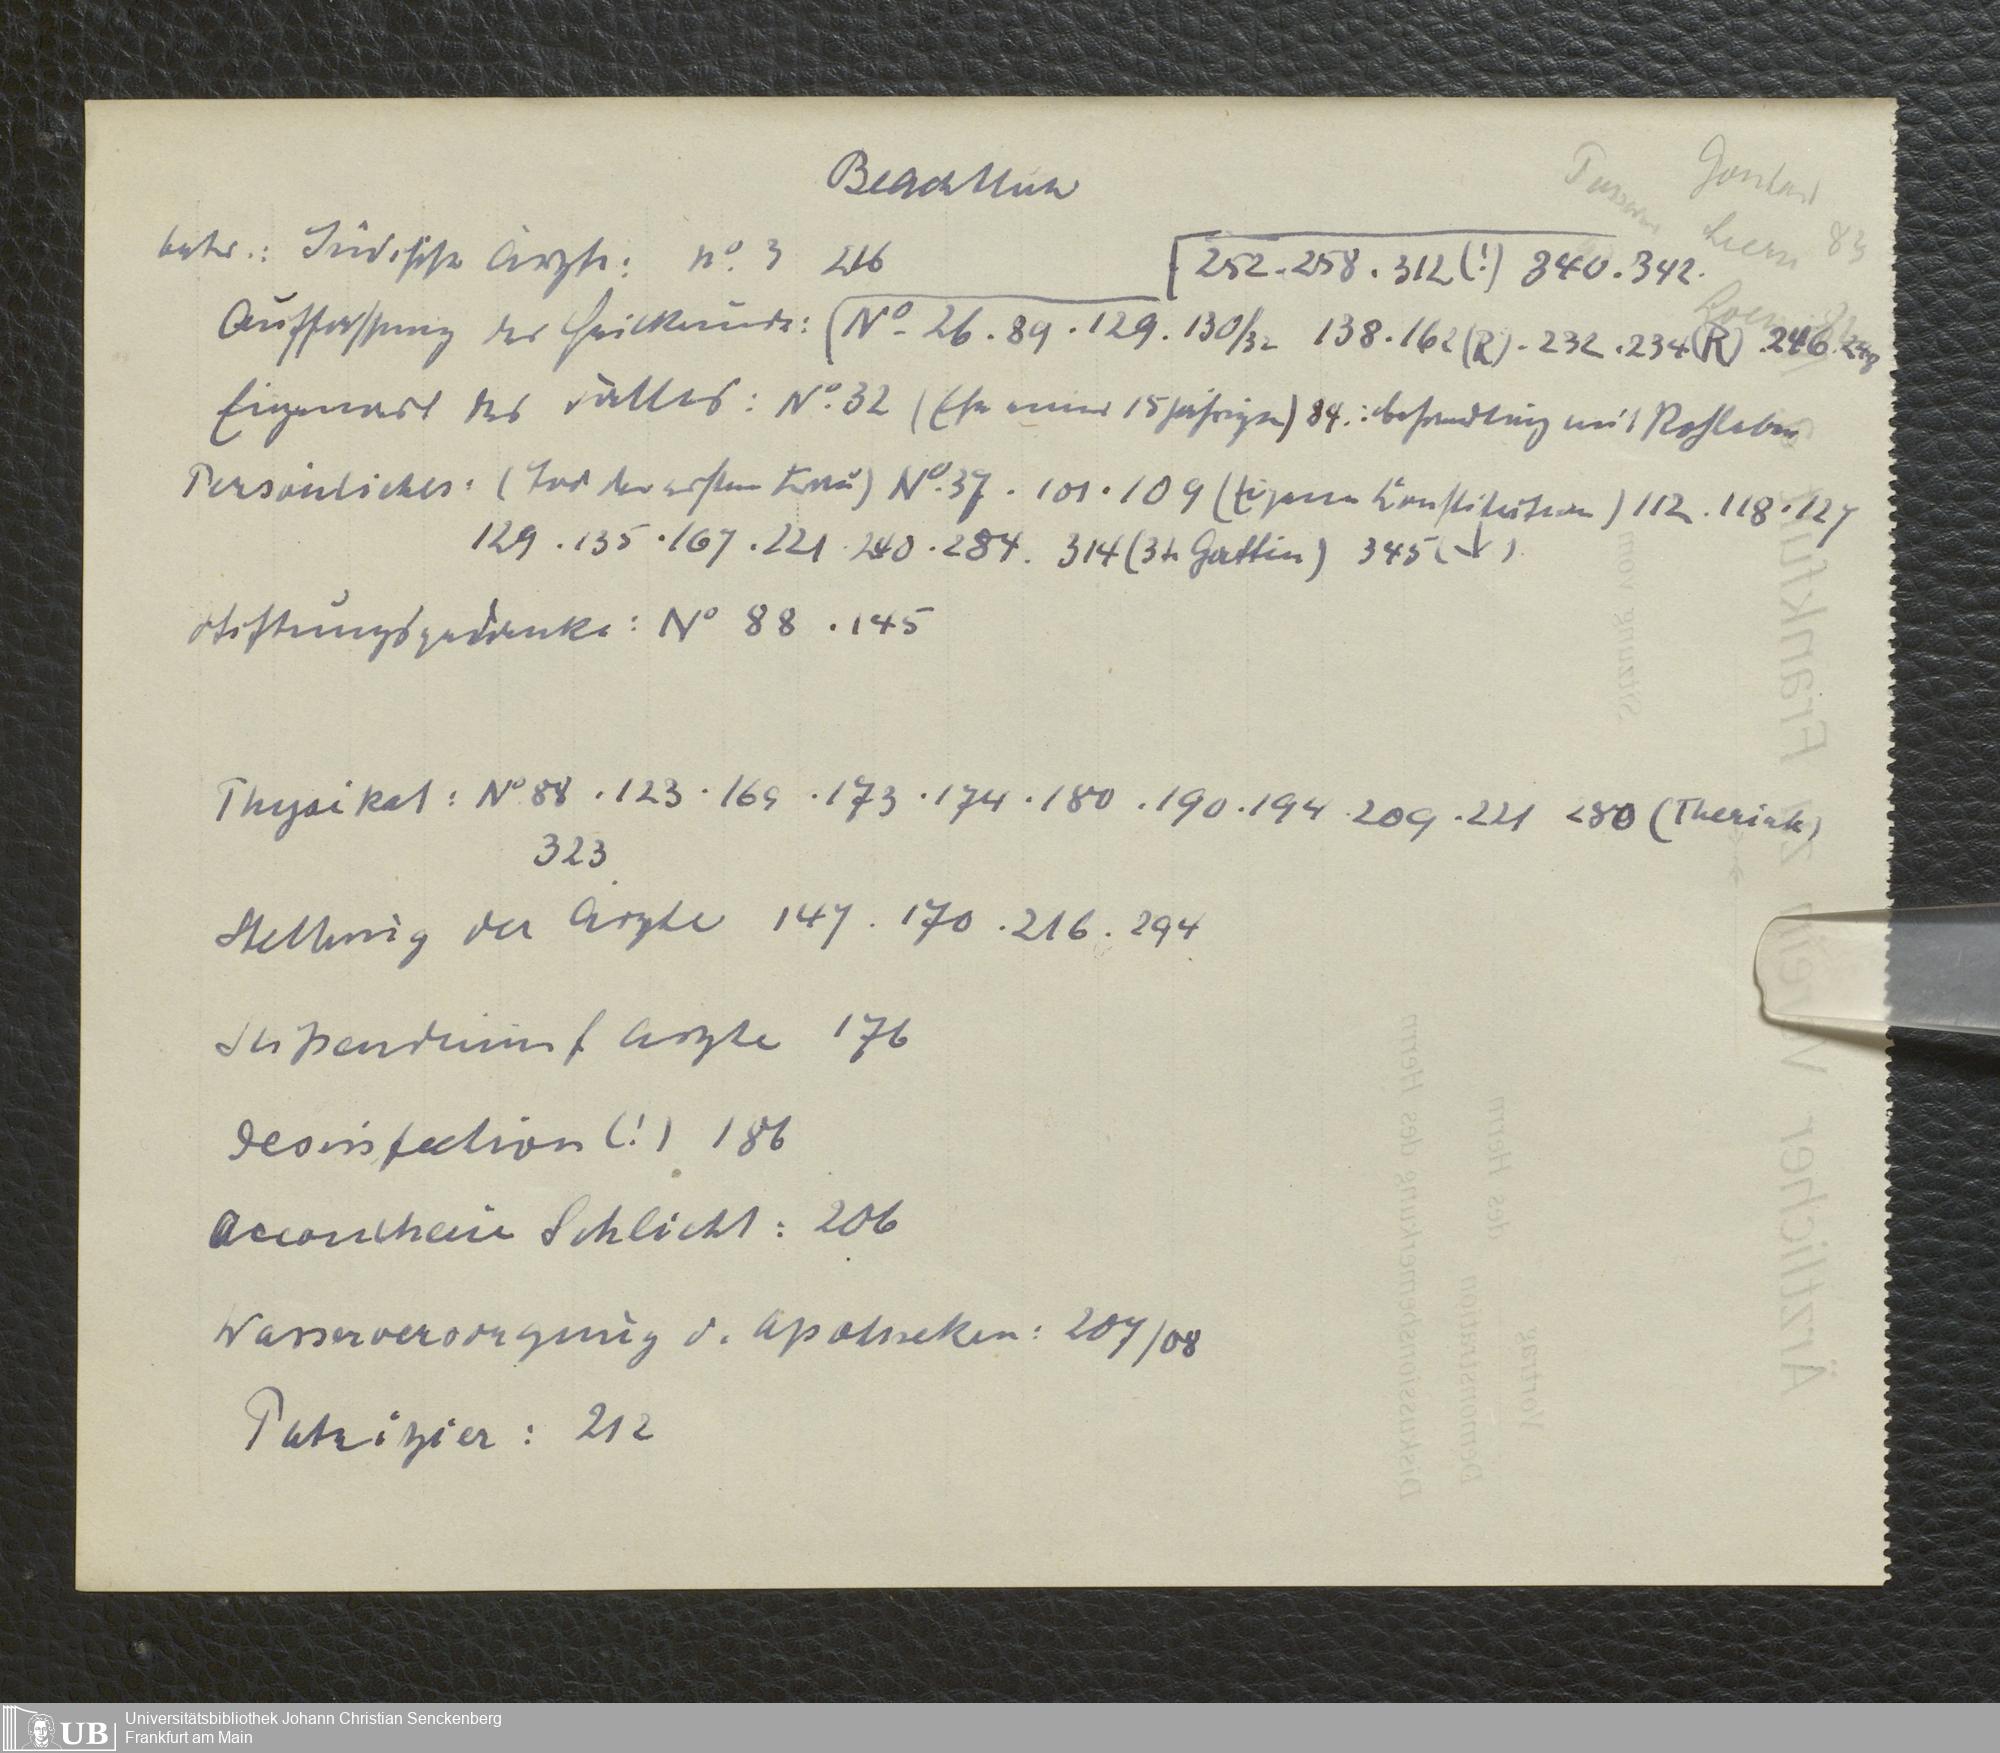 Beachtlich
betr.: Jüdische Ärzte: No. 3 216
252 . 258 . 312 (!) 340 . 342.
Auffassung der Heilkunde: No. 26 . 89 . 129 . 130/32 138 . 162 (R) . 232 . 234 (R) . 246 . 249
Eigenart des Falles: No. 32 (Ehe einer 15jährigen) 84 .: behandlung mit
Persönliches: (Tod der ersten Frau) No. 37 . 101 . 109 (Eigene Konstitution) 112 . 118 . 127
129 . 135 . 167 . 221 240 . 284 . 314 (3te Gattin) 345 (↓)
Stiftungsgedanke: No 88 . 145
Physikat: No 88 . 123 . 169 . 173 . 174 . 180 . 190 . 194 . 209 . 221 280 (Theriak)
323
Stellung der Ärzte 147 . 170 . 216 . 294
Stipendium f Ärzte 176
Desinfection (!) 186
Schlicht: 206
Wasserversorgung d. Apotheken: 207/08
Patrizier: 212
Ärztlicher Verein Frankfurt
Sitzung vom
Vortrag
Demonstration des Herrn
Diskussionsbemerkung des Herrn
UB
Universitätsbibliothek Johann Christian Senckenberg
Frankfurt am Main